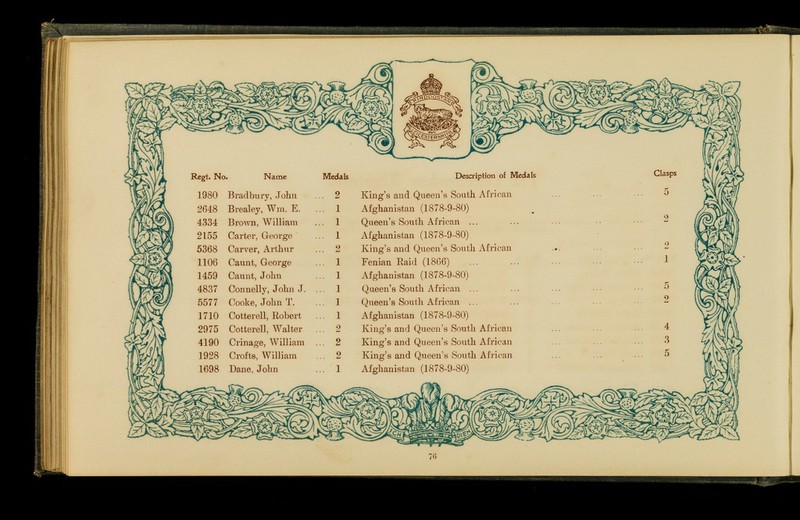 HINDOOSTAN
LEICESTERSHIRE
Regt. No. Name Medals Description of Medals Clasps
1980 Bradbury, John ... 2 King's and Queen's South African ... ... ... 5
2648 Brealey, Wm. E. ... 1 Afghanistan (1878-9-80)
4334 Brown, William ... 1 Queen's South African ... ... ... ... ... 2
2155 Carter, George ... 1 Afghanistan (1878-9-80)
5368 Carver, Arthur ... 2 King's and Queen's South African ... ... ... 2
1106 Caunt, George ... 1 Fenian Raid (1866) ... ... ... ... ... 1
1459 Caunt, John ... 1 Afghanistan (1878-9-80)
4837 Connelly, John J. ... 1 Queen's South African ... ... ... ... ... 5
5577 Cooke, John T. ... 1 Queen's South African ... ... ... ... ... 2
1710 Cotterell, Robert ... 1 Afghanistan (1878-9-80)
2975 Cotterell, Walter ... 2 King's and Queen's South African ... ... ... 4
4190 Crinage, William ... 2 King's and Queen's South African ... ... ... 3
1928 Crofts, William ... 2 King's and Queen's South African ... ... ... 5
1698 Dane, John ... 1 Afghanistan (1878-9-80)
76